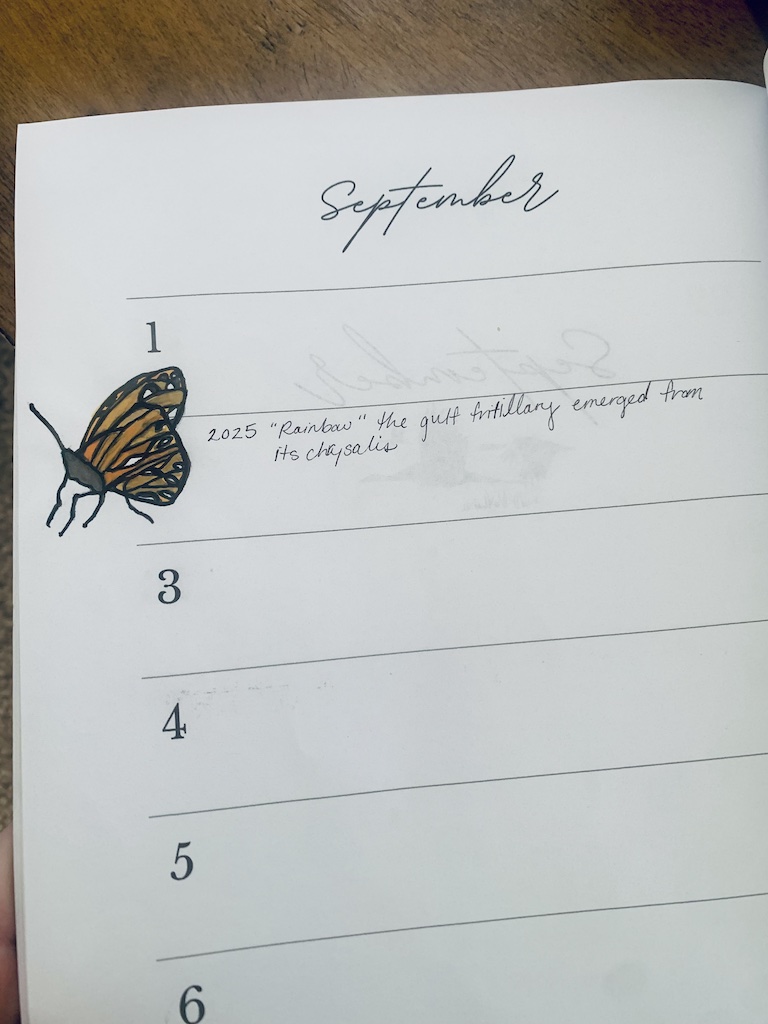 September
1
2025 "Rainbow" the gulf fritillary emerged from
its chrysalis
3
4
5
6